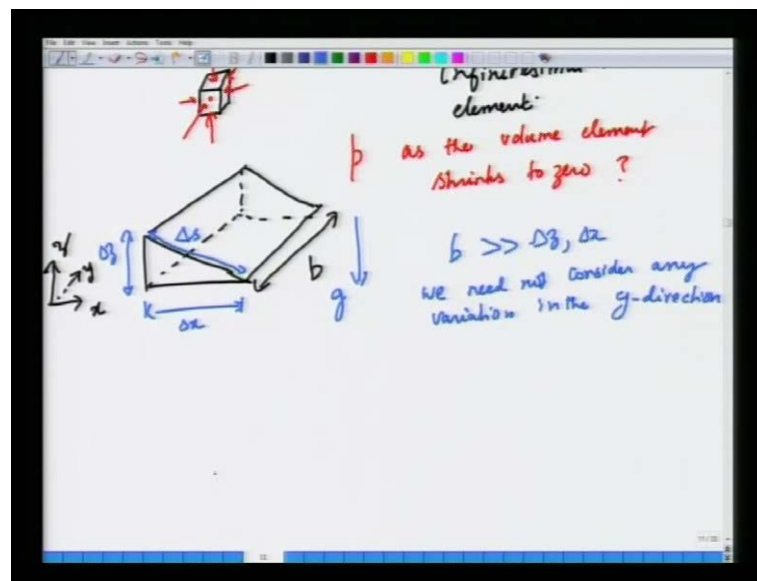 File Edit View Insert Actions Tools Help
Infinitesimal
element.
p as the volume element
shrinks to zero ?
Δz
Δs
b
g
z
y
x
Δx
b >> Δz, Δx
we need not consider any
variation in the y-direction